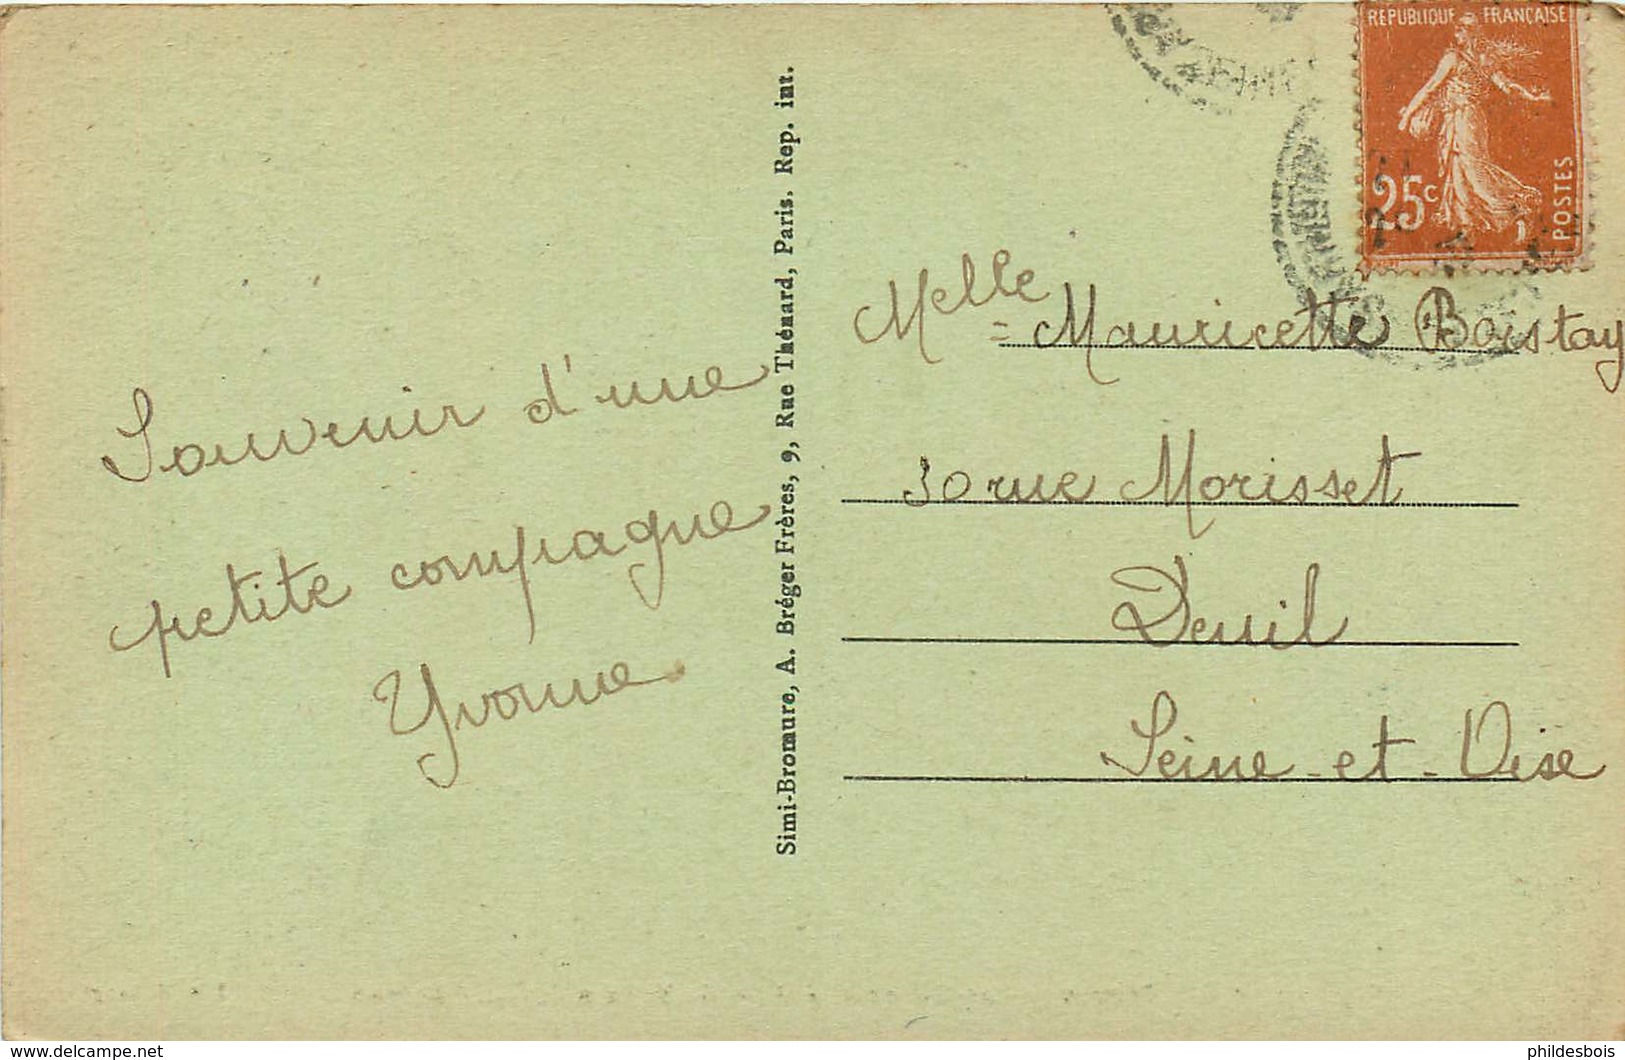 Souvenir d'une
petite compagne
Yvonne
Simi-Bromure, A. Bréger Frères, 9, Rue Thénard, Paris. Rep. int.
REPUBLIQUE FRANÇAISE
25c
POSTES
Melle Mauricette Boistay
30 rue Morisset
Deuil
Seine-et-Oise
www.delcampe.net
phildesbois